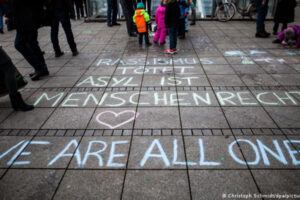 RASSISMUS
TÖTET
ASYL IST
MENSCHENRECHT
WE ARE ALL ONE
© Christoph Schmidt/dpa/picture